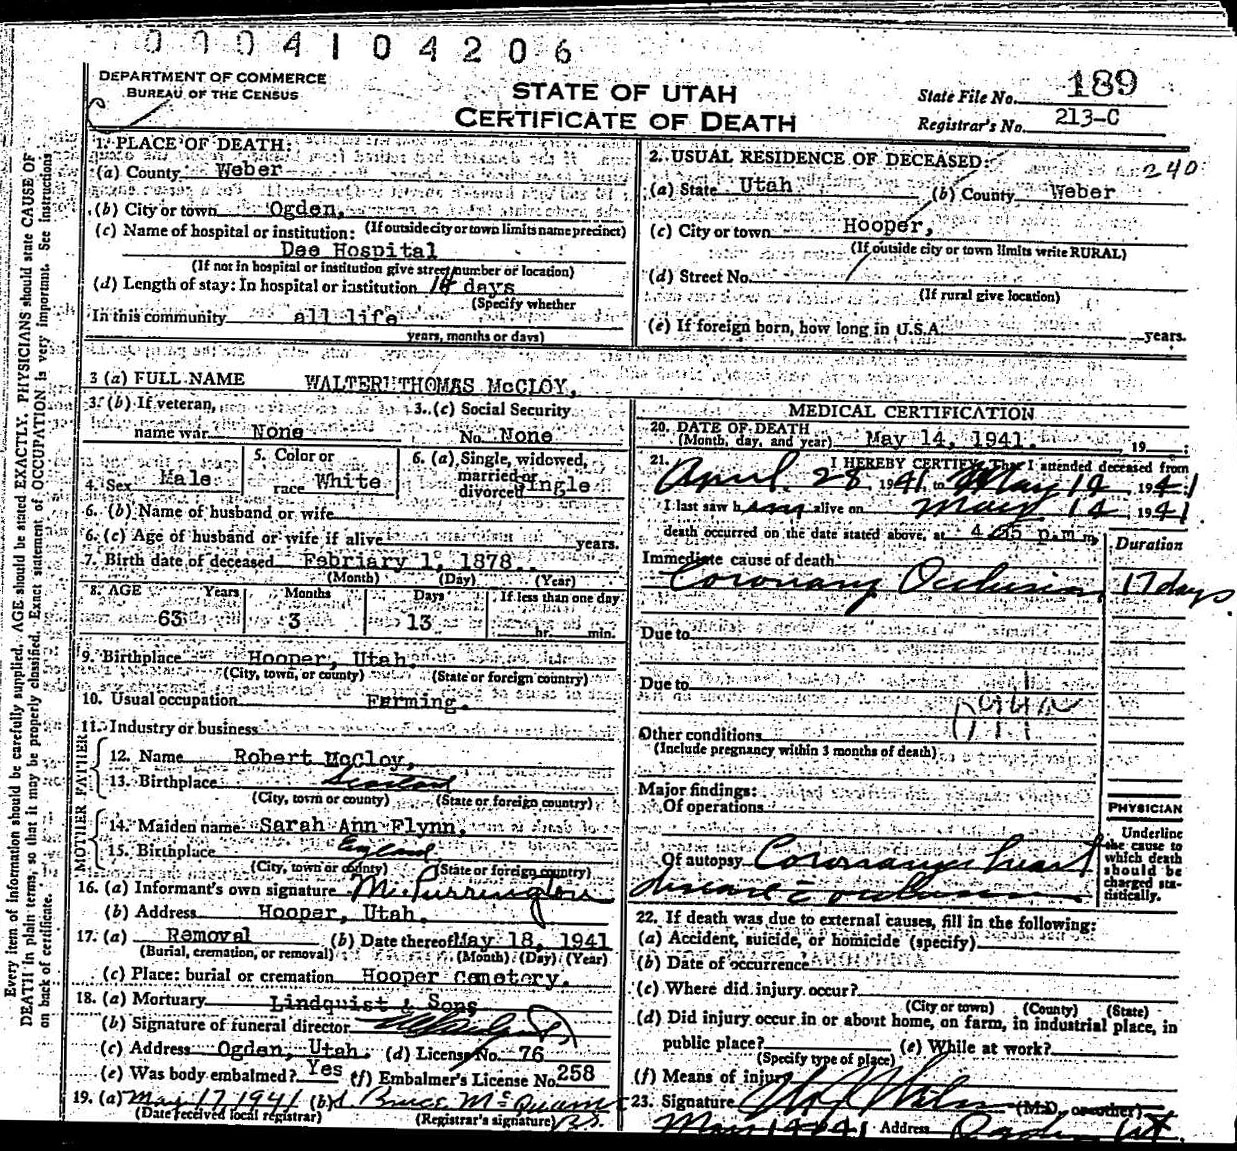 0004104206
DEPARTMENT OF COMMERCE
BUREAU OF THE CENSUS
STATE OF UTAH
CERTIFICATE OF DEATH
State File No. 189
Registrar's No. 213-C
Every item of information should be carefully supplied. AGE should be stated EXACTLY. PHYSICIANS should state CAUSE OF
DEATH in plain terms, so that it may be properly classified. Exact statement of OCCUPATION is very important. See instructions
on back of certificate.
1. PLACE OF DEATH:
(a) County Weber
(b) City or town Ogden,
(c) Name of hospital or institution: (If outside city or town limits name precinct)
Dee Hospital
(If not in hospital or institution give street number or location)
(d) Length of stay: In hospital or institution days
(Specify whether
In this community all life
years, months or days)
2. USUAL RESIDENCE OF DECEASED: 240
(a) State Utah (b) County Weber
(c) City or town Hooper,
(If outside city or town limits write RURAL)
(d) Street No.
(If rural give location)
(e) If foreign born, how long in U.S.A. years.
3 (a) FULL NAME WALTER THOMAS McCLOY,
3. (b) If veteran, 3. (c) Social Security
name war None No. None
4. Sex Male 5. Color or race White 6. (a) Single, widowed, married or divorced Single
6. (b) Name of husband or wife
6. (c) Age of husband or wife if alive years.
7. Birth date of deceased Febriary 1, 1878.
(Month) (Day) (Year)
8. AGE Years Months Days If less than one day
63 3 13 hr. min.
9. Birthplace Hooper, Utah.
(City, town, or county) (State or foreign country)
10. Usual occupation Farming.
11. Industry or business
FATHER
12. Name Robert McCloy,
13. Birthplace Scotland
(City, town or county) (State or foreign country)
MOTHER
14. Maiden name Sarah Ann Flynn,
15. Birthplace England
(City, town or county) (State or foreign country)
16. (a) Informant's own signature M. Purrington
(b) Address Hooper, Utah.
17. (a) Removal (b) Date thereof May 18, 1941
(Burial, cremation, or removal) (Month) (Day) (Year)
(c) Place: burial or cremation Hooper Cemetery.
18. (a) Mortuary Lindquist & Sons
(b) Signature of funeral director
(c) Address Ogden, Utah. (d) License No. 76
(e) Was body embalmed? Yes (f) Embalmer's License No. 258
19. (a) May 17 1941 (b)
(Date received local registrar) (Registrar's signature)
MEDICAL CERTIFICATION
20. DATE OF DEATH
(Month, day, and year) May 14, 1941. 19
21. I HEREBY CERTIFY, That I attended deceased from
April 28, 1941 to May 14, 1941
I last saw him alive on May 14, 1941
death occurred on the date stated above, at p.m. m.
Immediate cause of death Duration
Coronary Occlusion 17 days
Due to
Due to
Other conditions
(Include pregnancy within 3 months of death)
Major findings:
Of operations
Of autopsy Coronary heart
disease - occlusion
PHYSICIAN
Underline
the cause to
which death
should be
charged sta-
tistically.
22. If death was due to external causes, fill in the following:
(a) Accident, suicide, or homicide (specify)
(b) Date of occurrence
(c) Where did injury occur?
(City or town) (County) (State)
(d) Did injury occur in or about home, on farm, in industrial place, in
public place? (e) While at work?
(Specify type of place)
(f) Means of injury
23. Signature (M.D. or other)
May 14 1941 Address Ogden Ut.